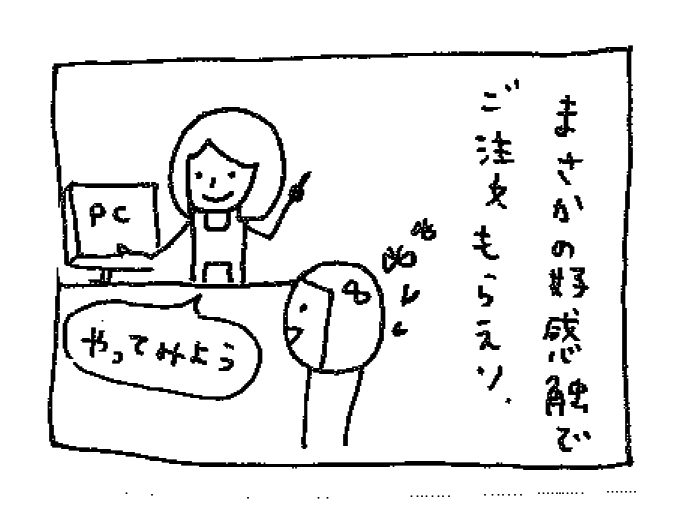 まさかの好感触で
ご注文もらえソ.
PC
やってみよう